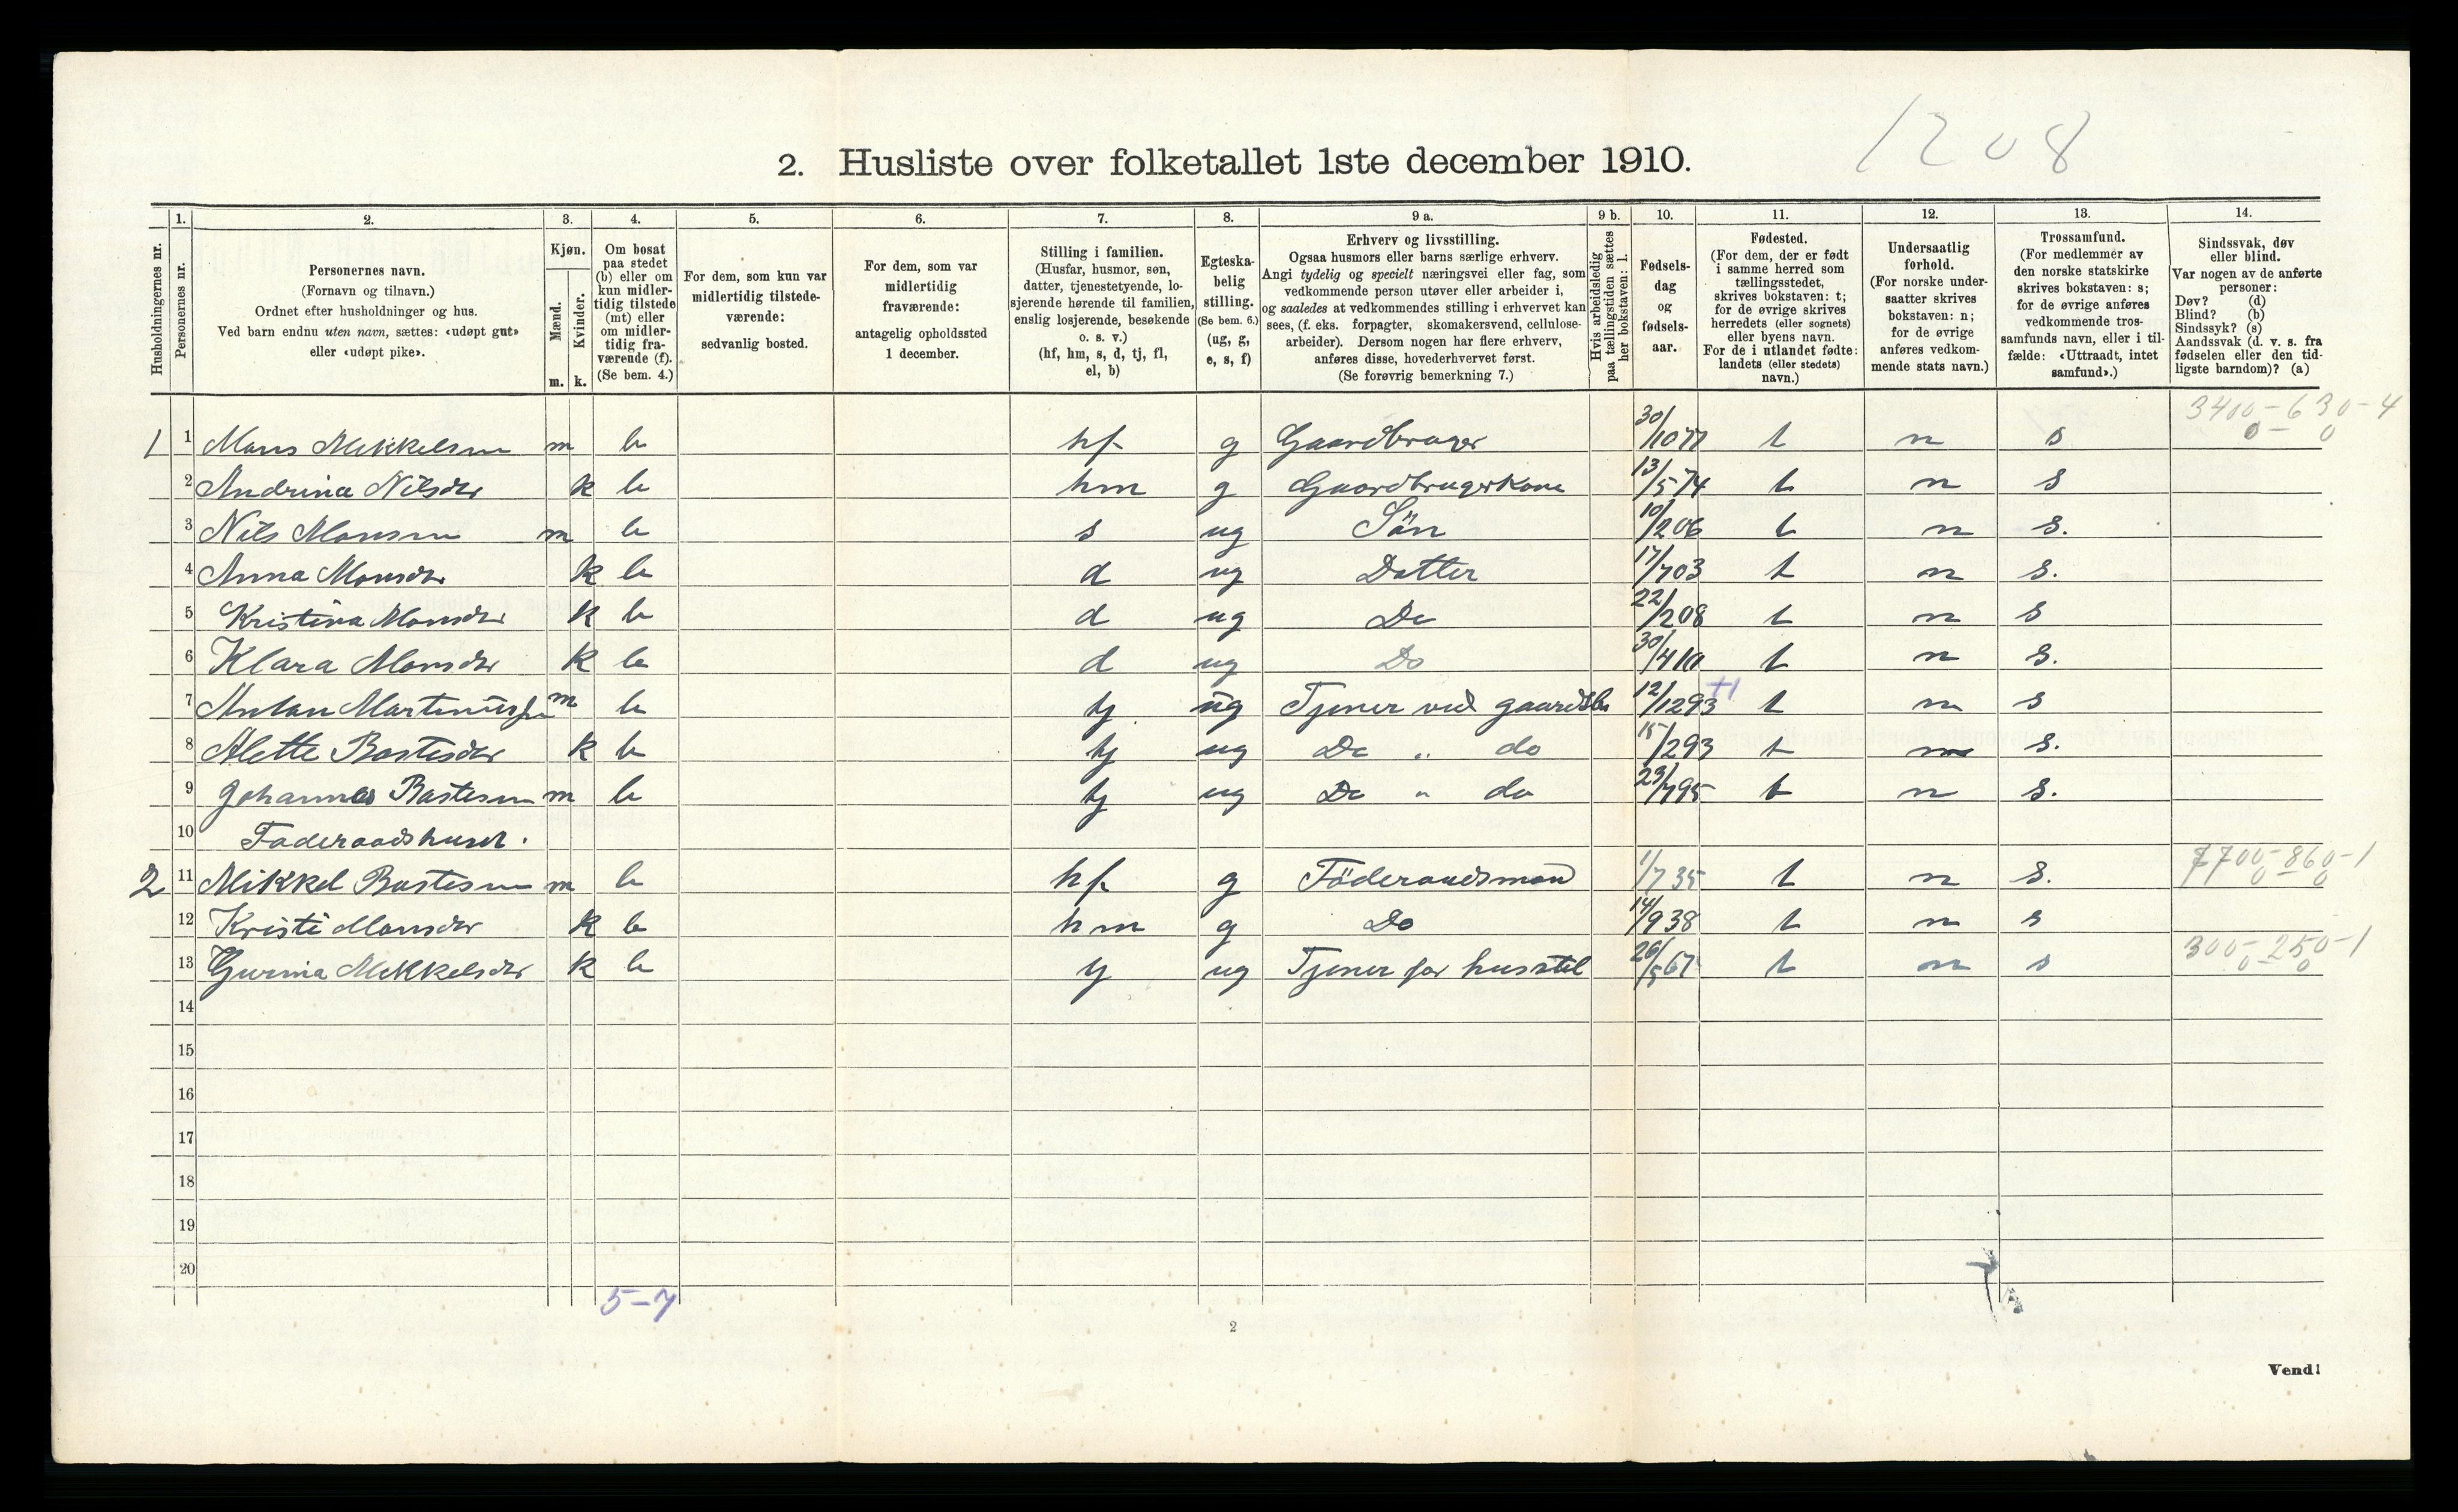 1208
2. Husliste over folketallet 1ste december 1910.
Husholdningernes nr.
1. Personernes nr.
2. Personernes navn. (Fornavn og tilnavn.) Ordnet efter husholdninger og hus. Ved barn endnu uten navn, sættes: «udøpt gut» eller «udøpt pike».
3. Kjøn. Mænd. m. Kvinder. k.
4. Om bosat paa stedet (b) eller om kun midlertidig tilstede (mt) eller om midlertidig fraværende (f). (Se bem. 4.)
5. For dem, som kun var midlertidig tilstedeværende: sedvanlig bosted.
6. For dem, som var midlertidig fraværende: antagelig opholdssted 1 december.
7. Stilling i familien. (Husfar, husmor, søn, datter, tjenestetyende, losjerende hørende til familien, enslig losjerende, besøkende o. s. v.) (hf, hm, s, d, tj, fl, el, b)
8. Egteskabelig stilling. (Se bem. 6.) (ug, g, e, s, f)
9 a. Erhverv og livsstilling. Ogsaa husmors eller barns særlige erhverv. Angi tydelig og specielt næringsvei eller fag, som vedkommende person utøver eller arbeider i, og saaledes at vedkommendes stilling i erhvervet kan sees, (f. eks. forpagter, skomakersvend, cellulosearbeider). Dersom nogen har flere erhverv, anføres disse, hovederhvervet først. (Se forøvrig bemerkning 7.)
9 b. Hvis arbeidsledig paa tællingstiden sættes her bokstaven: l.
10. Fødselsdag og fødselsaar.
11. Fødested. (For dem, der er født i samme herred som tællingsstedet, skrives bokstaven: t; for de øvrige skrives herredets (eller sognets) eller byens navn. For de i utlandet fødte: landets (eller stedets) navn.)
12. Undersaatlig forhold. (For norske undersaatter skrives bokstaven: n; for de øvrige anføres vedkommende stats navn.)
13. Trossamfund. (For medlemmer av den norske statskirke skrives bokstaven: s; for de øvrige anføres vedkommende trossamfunds navn, eller i tilfælde: «Uttraadt, intet samfund».)
14. Sindssvak, døv eller blind. Var nogen av de anførte personer: Døv? (d) Blind? (b) Sindssyk? (s) Aandssvak (d. v. s. fra fødselen eller den tidligste barndom)? (a)
3400-630-4
0 - 0
1 1 Mons Mikkelsen m b hf g Gaardbruger 30/10 77 t n s
2 Andrina Nilsdtr k b hm g Gaardbrugerkone 13/5 74 t n s
3 Nils Monsen m b s ug Sön 10/2 06 t n s.
4 Anna Monsdtr k b d ug Datter 17/7 03 t n s.
5 Kristina Monsdtr k b d ug Do 22/2 08 t n s
6 Klara Monsdtr k b d ug Do 30/4 10 t n s.
7 Anton Martinussen m b tj ug Tjener ved gaardsbr 12/12 93 t n s
8 Alette Bastesdtr k b tj ug Do " do 15/2 93 t n s.
9 Johannes Bastesen m b tj ug Do " do 23/7 95 t n s.
10 Føderaadshuset.
7700-860-1
0 - 0
2 11 Mikkel Bastesen m b hf g Föderaadsmand 1/7 35 t n s.
12 Kristi Monsdtr k b hm g Do 14/9 38 t n s
300-250-1
0 - 0
13 Gurina Mikkelsdtr k b tj ug Tjener for husstel 26/5 67 t n s
14
15
16
17
18
19
20
5-7
2
Vend!